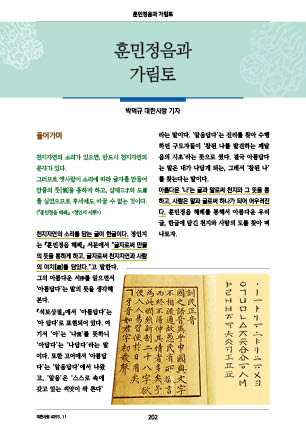 훈민정음과 가림토
훈민정음과
가림토
박덕규 대한사랑 기자
들어가며
천지자연의 소리가 있으면, 반드시 천지자연의
문자가 있다.
그러므로 옛사람이 소리에 따라 글자를 만들어
만물의 뜻[情]을 통하게 하고, 삼재고의 도道를
실었으므로 후세에도 바꿀 수 없는 것이다.
(『훈민정음 해례』 <정인지 서문>)
천지자연의 소리를 담는 글이 한글이다. 정인지
는 『훈민정음 해례』 서문에서 "글자로써 만물
의 뜻을 통하게 하고, 글자로써 천지자연과 사람
의 이치[道]를 담았다."고 말한다.
그의 아름다운 서序를 읽으면서
'아름답다'는 말의 뜻을 생각해
본다.
『석보상절』에서 '아름답다'는
'아 답다'로 표현되어 있다. 여
기서 '아'는 '나我'를 뜻하니
'아답다'는 '나답다'라는 말
이다. 또한 고어에서 '아름답
다'는 '알음답다'에서 나왔
고, '알음'은 '스스로 속에
갖고 있는 씨앗이 싹 튼다'
라는 말이다. '알음답다'는 진리를 찾아 수행
하던 구도자들이 '참된 나를 발견하는 깨달
음의 시초'라는 뜻으로 썼다. 결국 아름답다
는 말은 내가 나답게 되는, 그래서 '참된 나'
를 찾는다는 말이다.
아름다운 '나'는 글과 말로써 천지와 그 뜻을 통
하고, 사람은 말과 글로써 하나가 되어 어우러진
다. 훈민정음 해례를 통해서 아름다운 우리
글, 한글에 담긴 천지와 사람의 도를 찾아 떠
나보자.
訓民正音
國之語音異乎中國與文字
不相流通故愚民有所欲言
而終不得伸其情者多矣予
爲此憫然新制二十八字欲
使人人易習便於日用矣
ㄱ牙音如君字初發聲
202